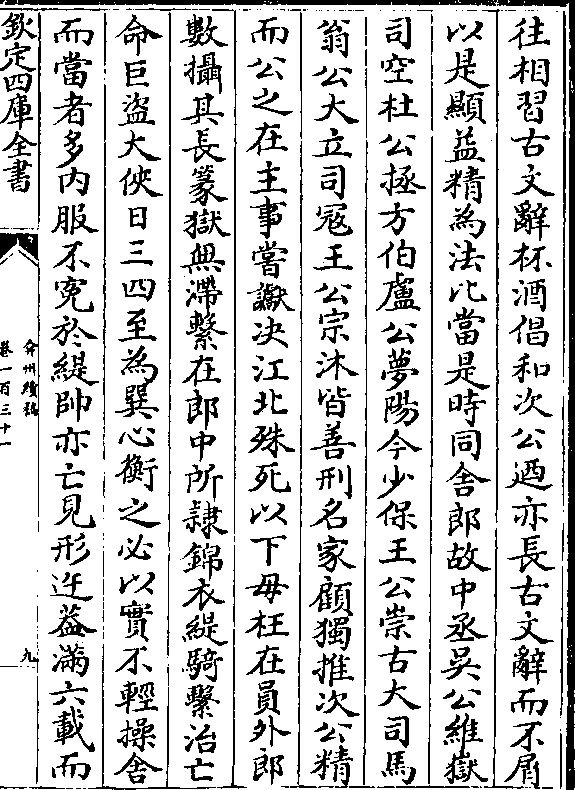 往相習古文辭杯酒倡和次公廼亦長古文辭而不屑
以是顯益精為法比當是時同舍郎故中丞吳公維嶽
司空杜公拯方伯盧公夢陽今少保王公崇古大司馬
翁公大立司冦王公宗沐皆善刑名家顧獨推次公精
而公之在主事嘗讞决江北殊死以下毋枉在員外郎
數攝其長篆獄無滯繫在郎中所隷錦衣緹騎繫治亡
命巨盜大俠日三四至為巽心衡之必以實不輕操舍
而當者多内服不寃於緹帥亦亡見形迕葢滿六載而
欽定四庫全書
弇州續稿
卷一百三十一
九